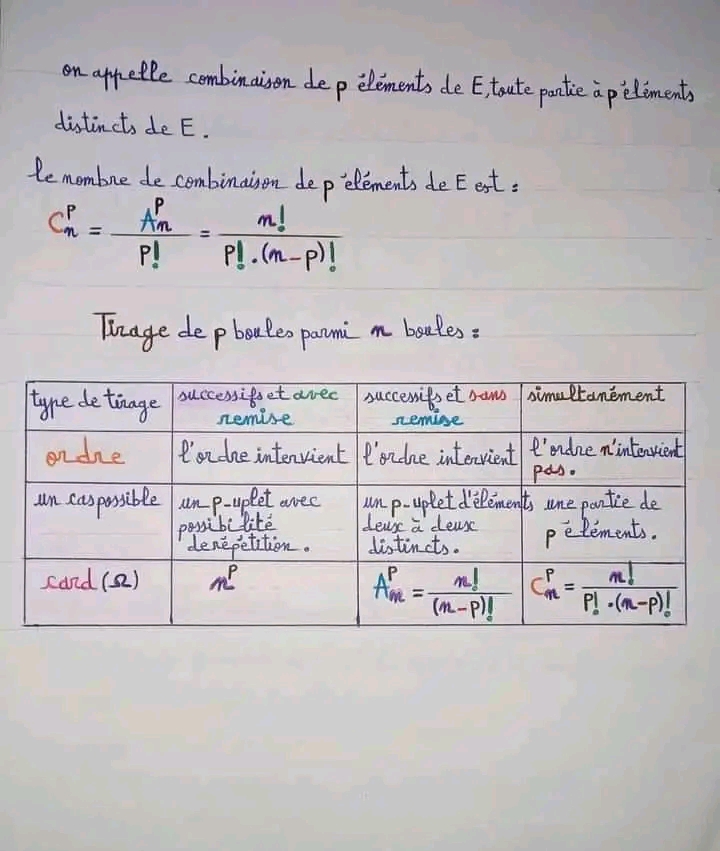 on appelle combinaison de p éléments de E, toute partie à p éléments
distincts de E.
le nombre de combinaison de p éléments de E est :
C_n^p = A_n^p / P! = n! / P!.(n-p)!
Tirage de p boules parmi n boules :
type de tirage | successifs et avec remise | successifs et sans remise | simultanément
ordre | l'ordre intervient | l'ordre intervient | l'ordre n'intervient pas.
un cas possible | un p-uplet avec possibilité de répétition. | un p-uplet d'éléments deux à deux distincts. | une partie de p éléments.
card (Ω) | n^p | A_n^p = n! / (n-p)! | C_n^p = n! / P!.(n-p)!